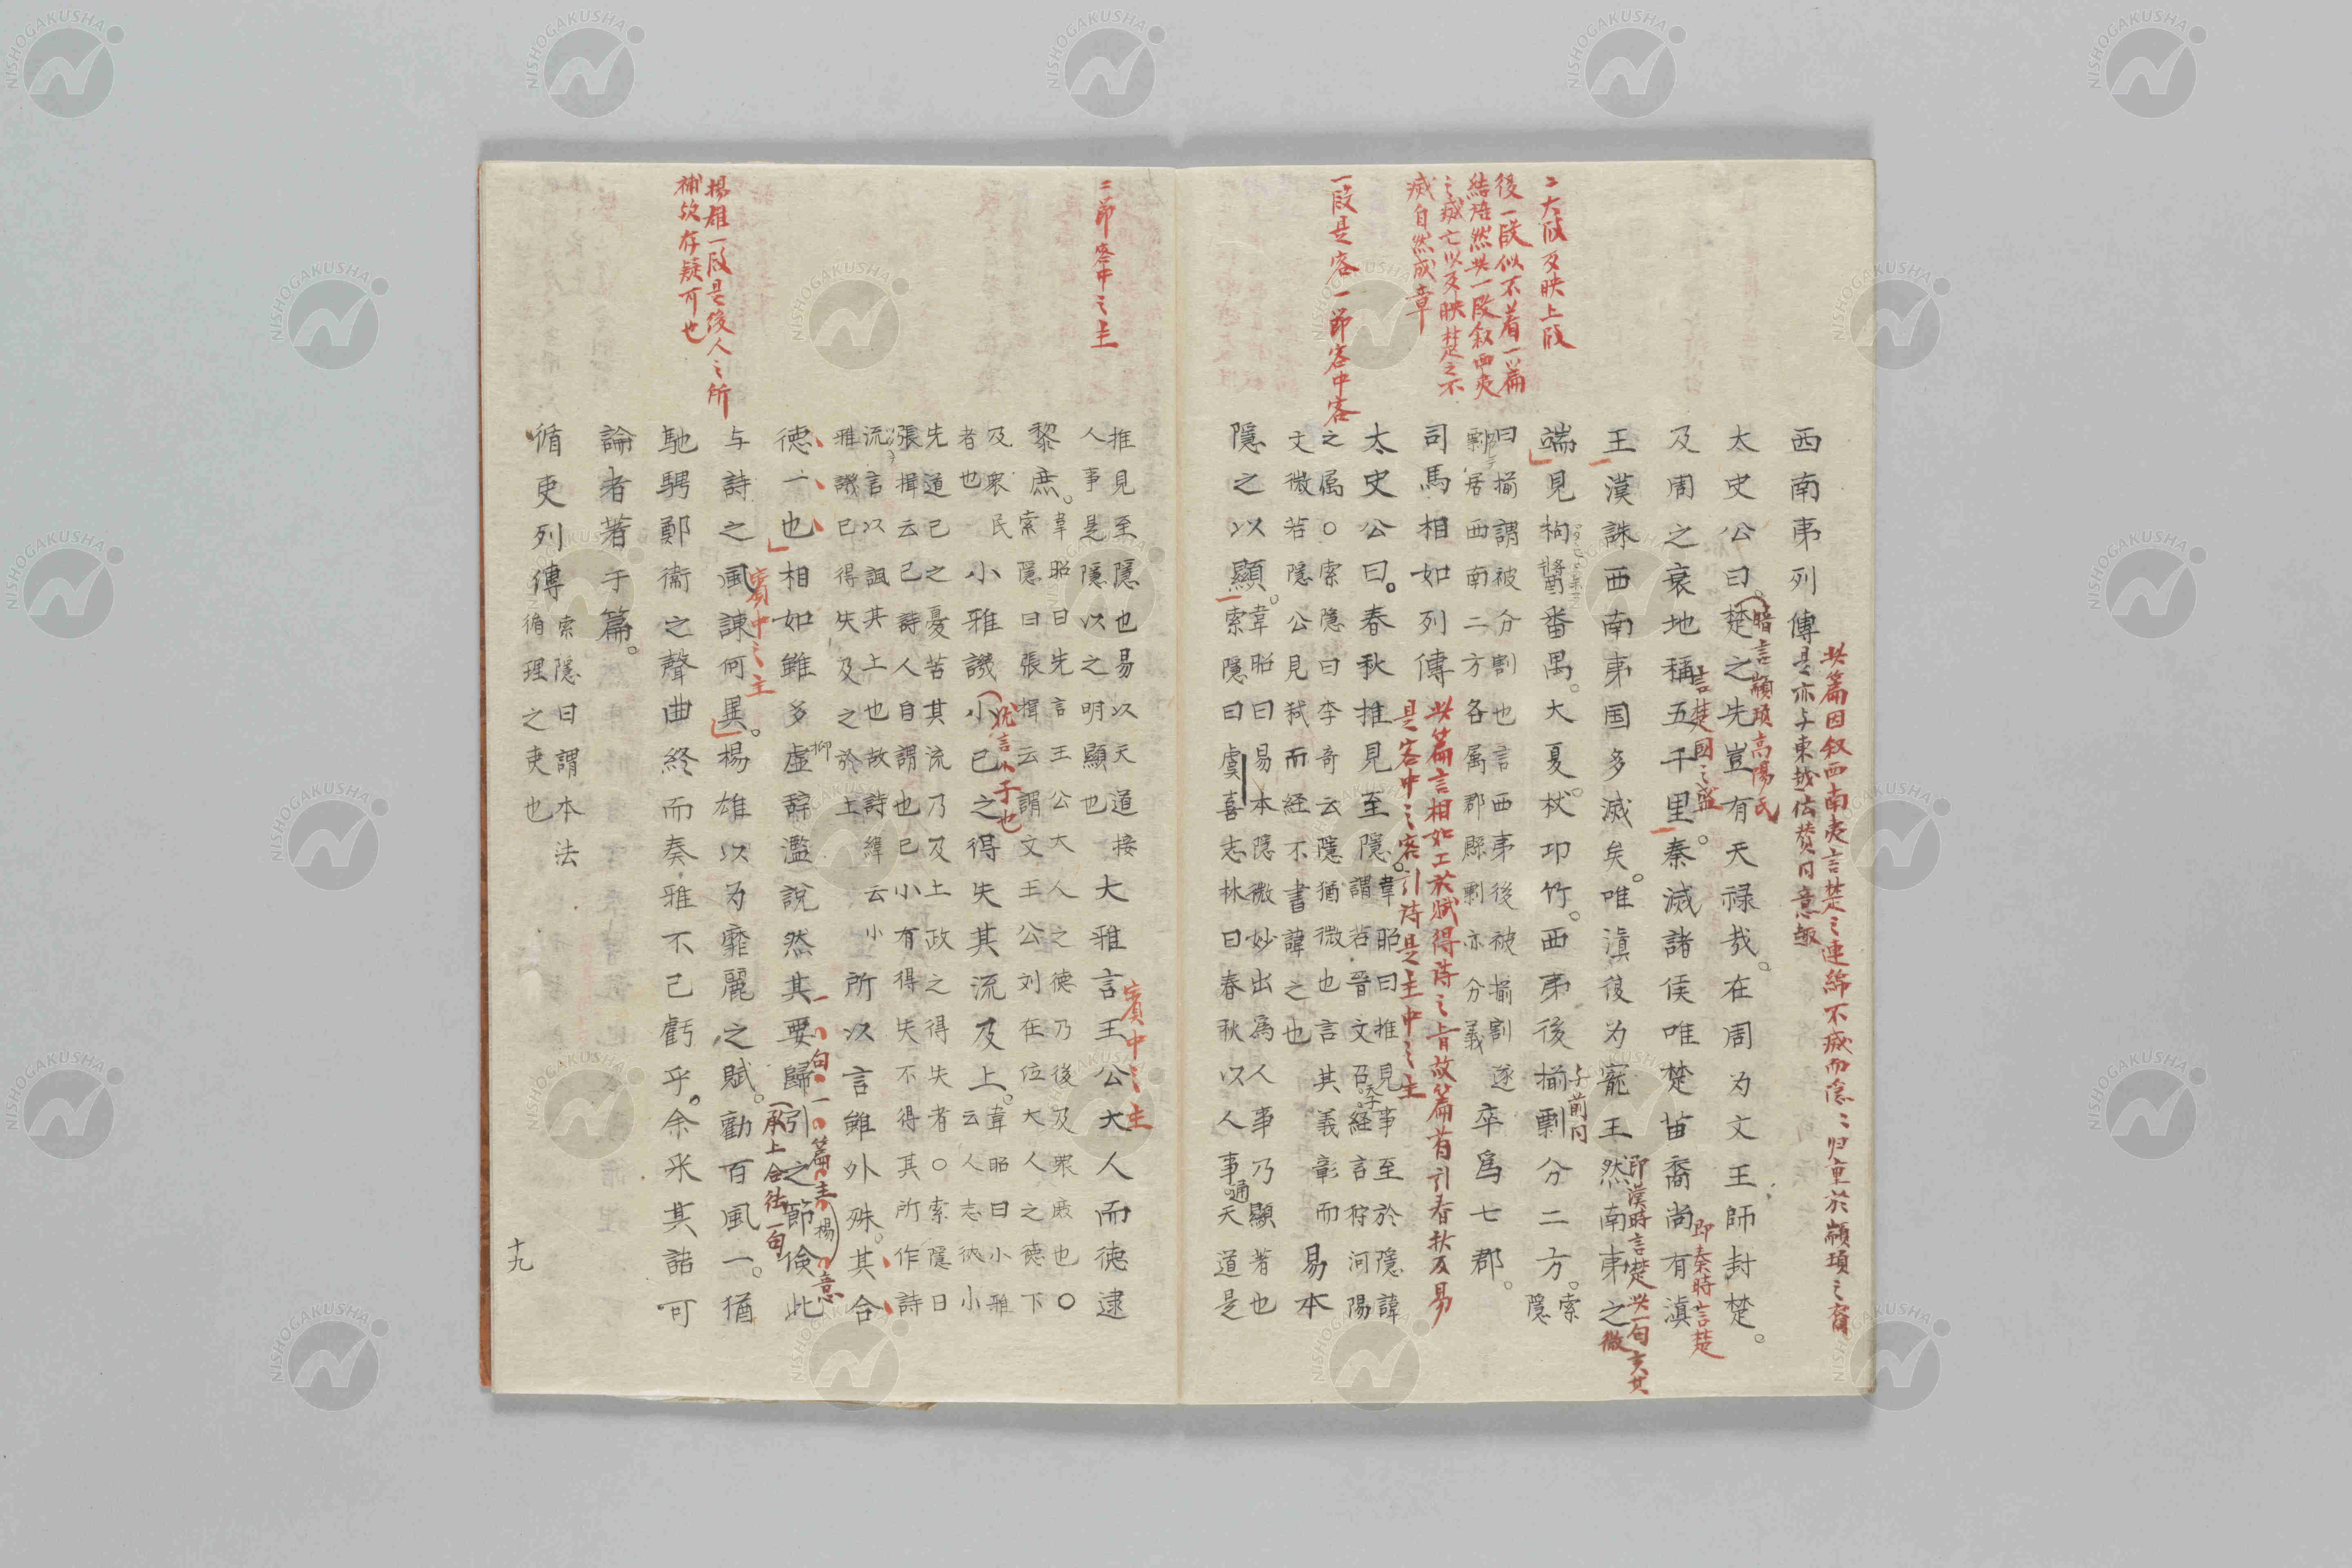 二大段反映上段
後一段似不着一篇
結語然此一段叙西夷
之滅亡以反映楚之不
滅自然成章
一段是客一節客中客
西南夷列傳
此篇因叙西南夷言楚之連綿不滅而隠々归重於顓頊之裔
是亦与東越伝賛同意趣
太史公曰楚之先豈有天禄哉。在周为文王師封楚。
暗言顓頊高陽氏
及周之衰地稱五千里。秦滅諸侯唯楚苗裔尚有滇
言楚國之盛
即秦時言楚
王漢誅西南夷国多滅矣。唯滇復为寵王然南夷之
即漢時言楚此一句言其
微
端見枸醬番禺。大夏杖邛竹。西夷後揃剽分二方。
索
隠
子前同
曰揃謂被分割也言西夷後被揃割遂
剽居西南二方各属郡縣剽亦分義
卒爲七郡。
司馬相如列傳
此篇言相如工於賦得詩之旨故篇首引春秋及易
是客中之客。引詩是主中之主
太史公曰。春秋推見至隱
韋昭曰推見事至於隱諱
謂若晋文召天子経言狩河陽
之属○索隠曰李奇云隠猶微也言其義彰而
文微若隠公見弒而経不書諱之也
易本
隱之以顯。
韋昭曰易本隠微妙出為人事乃顯著也
索隠曰虞喜志林曰春秋以人事通天道是
二節客中之主
楊雄一段是後人之所
補欤存疑可也
推見至隱也易以天道接
人事是隱以之明顯也
大雅言王公大人而徳逮
賓中之主
黎庶。
韋昭曰先言王公大人之徳乃後及衆庶也○
索隠曰張揖云謂文王公刘在位大人之徳下
及衆民
者也
小雅譏小已之得失其流及上。
猶言小子也
韋昭曰小雅
云人志狹小
先道己之憂苦其流乃及上政之得失者○索隠曰
張揖云己詩人自謂也己小有得失不得其所作詩
流言以詛其上也故詩緯云小
雅譏已得失及之於上
所以言雖外殊。其合
徳一也相如雖多虚辞濫說然其要歸引之節儉此
抑
一句一篇主意
承上合往一句
与詩之風諫何異。楊雄以为靡麗之賦。勸百風一。猶
賓中之主
馳騁鄭衞之聲曲終而奏雅不已虧乎。余采其語可
論者著于篇。
循吏列傳
索隠曰謂本法
循理之吏也
十九